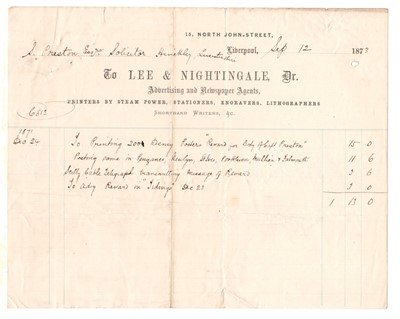 15, NORTH JOHN-STREET,
S. Preston Esqr. Solicitor Hinckley Leicestershire Liverpool, Sep 12 1877
To LEE & NIGHTINGALE, Dr.
Advertising and Newspaper Agents,
PRINTERS BY STEAM POWER, STATIONERS, ENGRAVERS, LITHOGRAPHERS
SHORTHAND WRITERS, &c.
1871
Dec 24 To Printing 200 Demy Posters "Reward for Body of Preston" 15 0
Posting same in 11 6
transmitting message of Reward 3 6
To Advg Reward in Dec 23 3 0
1 13 0